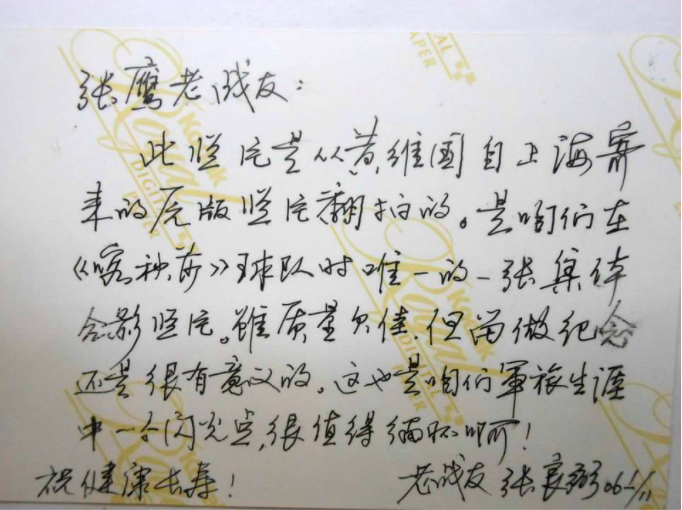 张鹰老战友：
此照片是从黄维国自上海寄
来的原版照片翻拍的。是咱们在
《喀秋莎》球队时唯一的一张集体
合影照片。虽质量欠佳,但留做纪念
还是很有意义的。这也是咱们军旅生涯
中一个闪光点,很值得缅怀啊！
祝健康长寿！ 老战友 张良弼 06 1/11
KODAK
Royal
DIGITAL PAPER